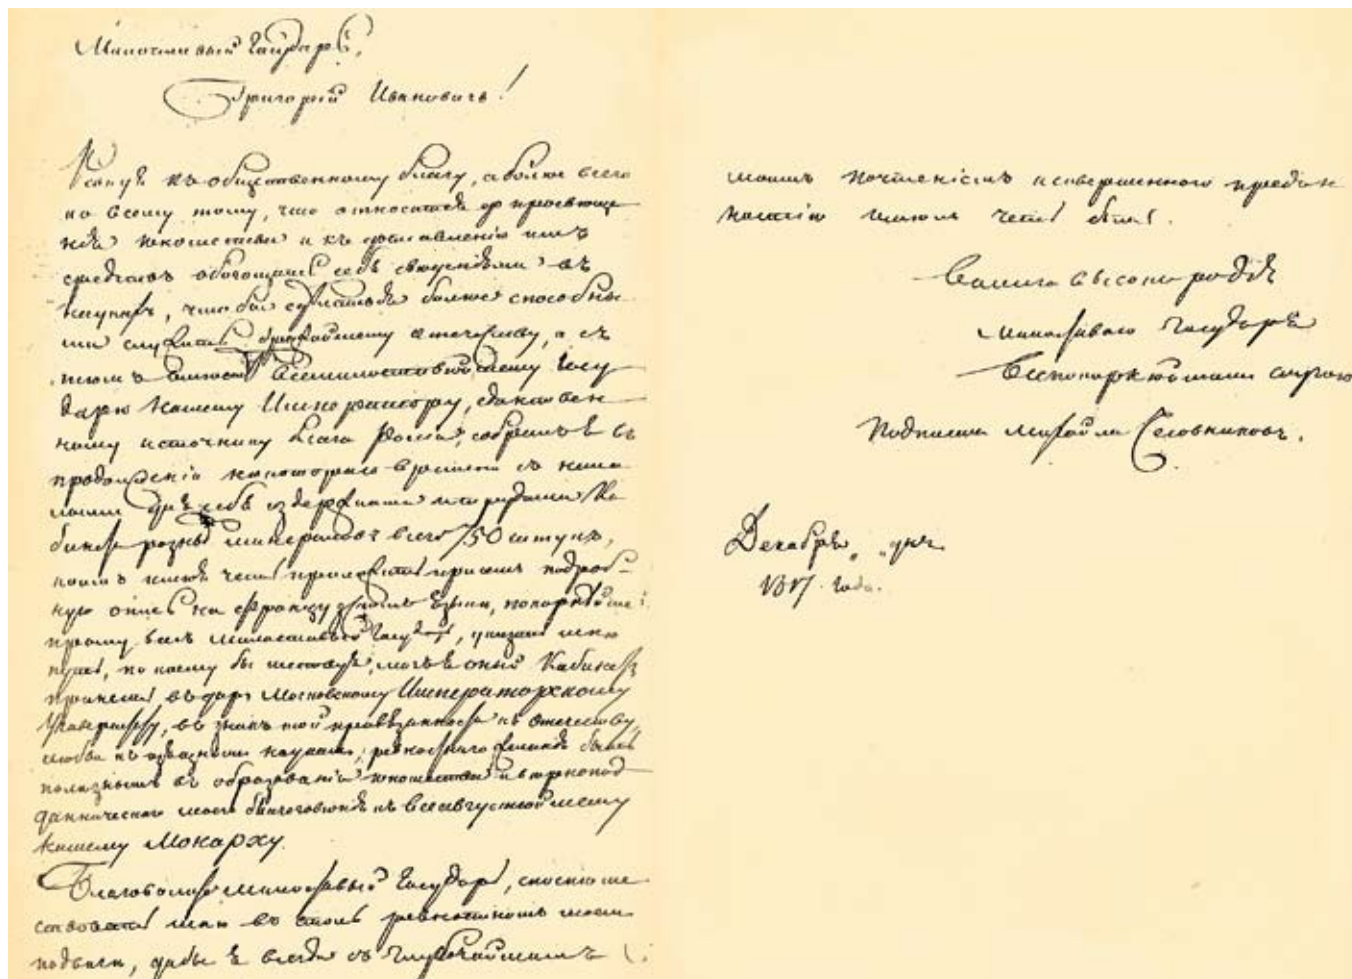 Милостивый Государь,
Григорій Ивановичъ!
къ общественному благу, а более всего
ко всему тому, что относится до просвеще
нія юношества и къ доставленію имъ
средствъ обогащать себя сведеніями въ
наукахъ, чтобы соделаться более способны
ми служить дражайшему отечеству, а съ
темъ вместе Всемилостивейшему Госу
дарю Нашему Императору,
ному источнику блага Россіи, собралъ я въ
продолженіи некотораго времени съ нема
лыми для себя издержками и трудами Ка
бинетъ разныхъ минераловъ всего 150 штукъ,
коимъ имея честь приложить при семъ подроб
ную опись на Французскомъ языке, покорнейше
прошу васъ Милостивый Государь, указать мне
путь, по коему бы могъ я оный Кабинетъ
принести въ даръ Московскому Императорскому
Университету, въ знакъ той привязанности къ отечеству,
любви къ наукамъ, ревностнаго желанія быть
полезнымъ въ образованіи юношества и вернопод
данническаго моего благоговенія къ Всеавгустейшему
нашему Монарху.
Благоволите Милостивый Государь, споспеше
ствовать мне въ столь ревностномъ моемъ
подвиге, дабы я всегда съ глубочайшимъ
моимъ почтеніемъ и совершенною предан
ностію имелъ честь быть.
Вашего высокородія
Милостиваго Государя
Всепокорнейшимъ слугою
Подписалъ Михайла
Декабря " " дня
1817. года.